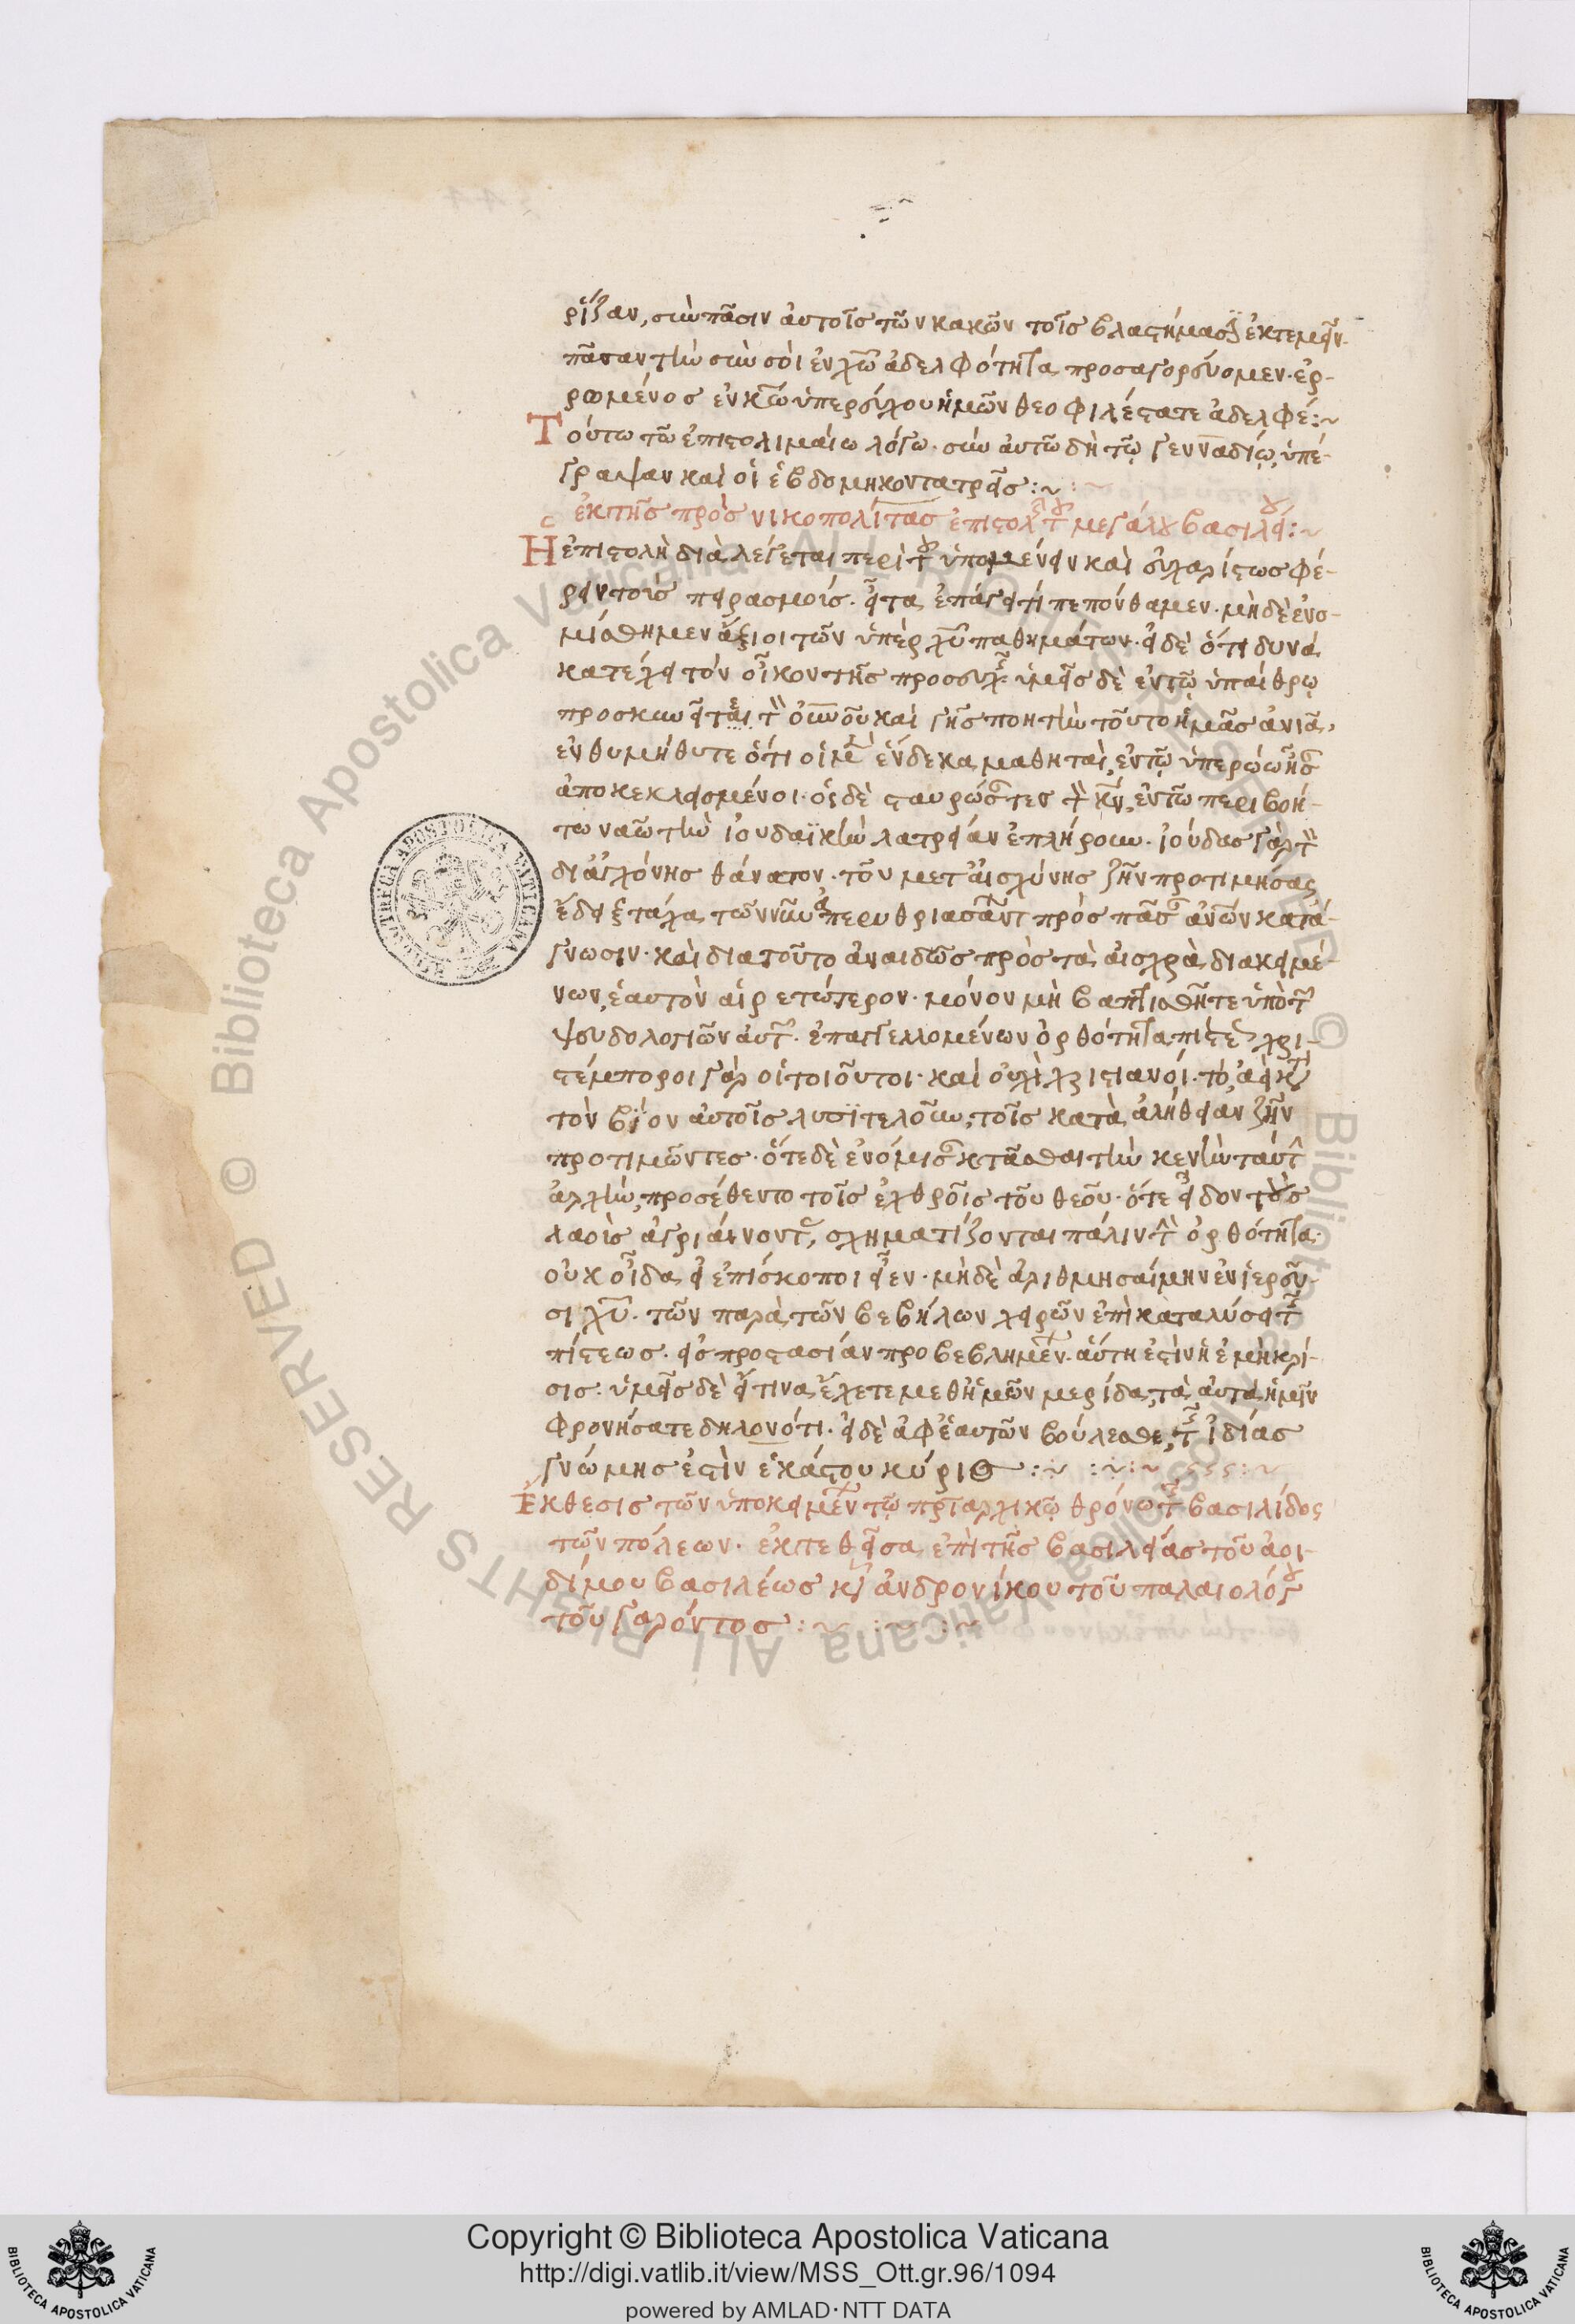 ρίζαν, σὺν πᾶσιν αὐτοῖς τῶν κακῶν τοῖς βλαστήμασιν ἐκτεμεῖν.
πᾶσαν τὴν σὺν σοὶ ἐν χω ἀδελφότητα προσαγορεύομεν. ἐρ-
ρωμένος ἐν κω ὑπερεύχου ἡμῶν θεοφιλέστατε ἀδελφέ :~
Τούτω τῶ ἐπιστολιμαίω λόγω. σὺν αὐτῶ δὴ τῷ γενναδίῳ, ὑπέ-
γραψαν καὶ οἱ ἑβδομηκοντατρεῖς :~
ἐκ τῆς πρὸς νικοπολίτας ἐπιστολῆς τοῦ μεγάλου βασιλείου :~
Ἡ ἐπιστολὴ διαλέγεται περὶ τοῦ ὑπομένειν καὶ εὐχαρίστως φέ-
ρειν τοὺς πειρασμούς. εἶτα ἐπάγει τί πεπόνθαμεν. μηδὲ ἐνο-
μίσθημεν ἄξιοι τῶν ὑπὲρ χυ παθημάτων. εἰ δὲ ὅτι δυνά
κατέχει τὸν οἶκον τῆς προσευχῆς ὑμεῖς δὲ ἐν τῷ ὑπαίθρῳ
προσκυνεῖτε τὸν οὐνοῦ καὶ γῆς ποητὴν τοῦτο ἡμᾶς ἀνιᾶ,
ἐνθυμήθητε ὅτι οἱ μὲν ἕνδεκα μαθηταὶ, ἐν τῷ ὑπερώω ἦσαν
ἀποκεκλεισμένοι. οἱ δὲ σταυρώσαντες τὸν κν, ἐν τῶ περιβοή-
τω ναῶ τὴν ἰουδαϊκὴν λατρείαν ἐπλήρουν. ἰούδας γὰρ τὸν
δι' ἀγχόνης θάνατον. τοῦ μετ' αἰσχύνης ζῆν προτιμήσας
ἔδειξε τάχα τῶν νῦν ἀπερυθριασάντων πρὸς πᾶσαν ἀνων κατά-
γνωσιν. καὶ διατοῦτο ἀναιδῶς πρὸς τὰ αἰσχρὰ διακειμέ-
νων, ἑαυτὸν αἱρετώτερον. μόνον μὴ βαπτισθῆτε ὑπὸ τῶν
ψευδολογιῶν αὐτῶν. ἐπαγγελλομένων ὀρθότητα πίστεως χρι-
στέμποροι γὰρ οἱ τοιοῦτοι. καὶ οὐχὶ χριστιανοί. τὸ ἀεὶ κατὰ
τὸν βίον αὐτοῖς λυσιτελοῦν, τοῖς κατὰ ἀλήθειαν ζῆν
προτιμῶντες. ὅτε δὲ ἐνόμισαν κτᾶσθαι τὴν κενὴν ταύτην
ἀρχὴν, προσέθεντο τοῖς ἐχθροῖς τοῦ θεοῦ. ὅτε εἶδον τοὺς
λαοὺς ἀγριαίνοντας, σχηματίζονται πάλιν τὴν ὀρθότητα.
οὐκ οἶδα εἰ ἐπίσκοποι εἶεν. μηδὲ ἀριθμησαίμην ἐν ἱερεῦ-
σι χυ. τῶν παρὰ τῶν βεβήλων χειρῶν ἐπὶ καταλύσει τῆς
πίστεως. εἰς προστασίαν προβεβλημένων. αὕτη ἐστὶν ἡ ἐμὴ κρί-
σις. ὑμεῖς δὲ εἴ τινα ἔχετε μεθ' ἡμῶν μερίδα, τὰ αὐτὰ ἡμῖν
φρονήσατε δηλονότι. εἰ δὲ ἀφ' ἑαυτῶν βούλεσθε, τῆς ἰδίας
γνώμης ἐστὶν ἑκάστου κύριος :~ :~:~
Ἔκθεσις τῶν ὑποκειμένων τῷ πριαρχικῷ θρόνω τῆς βασιλίδος
τῶν πόλεων. ἐκτεθεῖσα ἐπὶ τῆς βασιλείας τοῦ ἀοι-
δίμου βασιλέως κυ ἀνδρονίκου τοῦ παλαιολόγου
τοῦ γέροντος :~ :~ :~
Copyright © Biblioteca Apostolica Vaticana
http://digi.vatlib.it/view/MSS_Ott.gr.96/1094
powered by AMLAD·NTT DATA